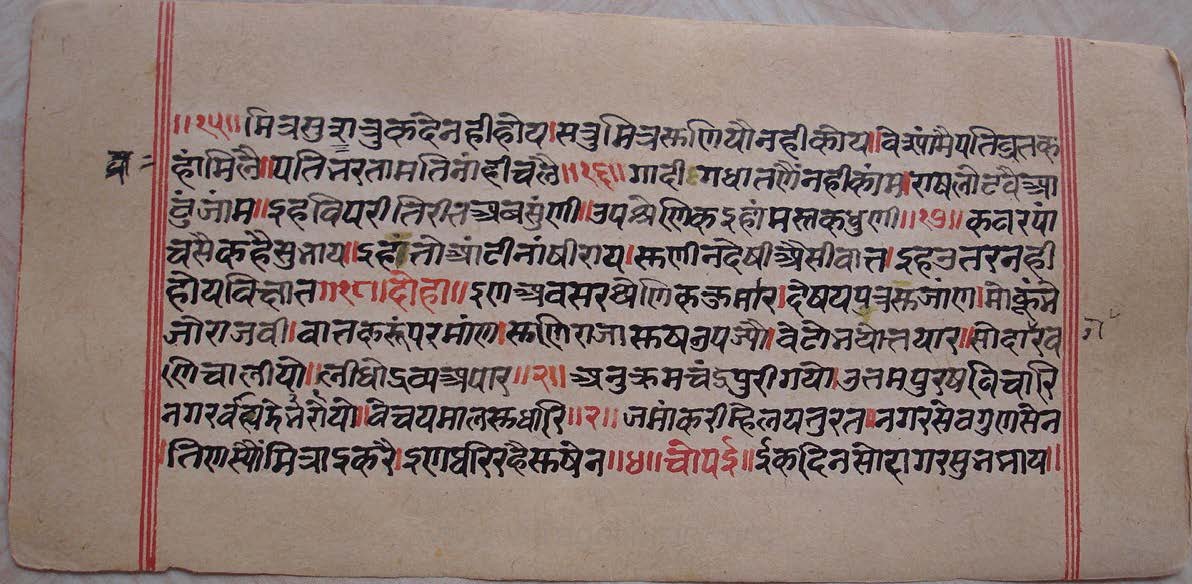 ॥१५॥ मित्रसुशत्रुकदैनहीहोय।सत्रुमित्रसुणियौनहीकोय।विश्रांमैपतिघुतक
हांमिलै॥पतिव्रतामतिनांहीचलै॥१६॥ गादीगधातणैंनहीकांम।राषलोटवैआ
वुंजांम॥इहविपरीतिरीतअबसुंणी॥उपश्रेणिकइहांमस्तकधुणी॥१७॥ कवरपां
चसैकहैसुनाय॥इहांतोआंटीनांषीराय।सुणीनदेषीऐसीवात।इहउतरनही
होयविज्ञात॥१८॥दोहा॥ इणअवसरश्रेणिककुमार।देषयपुत्रसुजांण।मोकूंनै
जोराजवी।वातकरूंपरमांण।सुणिराजासुषउपज्यौ।वेटोनयोतयार॥सोदार
णिचालीयो॥लीधोद्रव्यअपार॥२॥ अनुक्रमचंद्रपुरीगयो।उतमपुरषविचारि
नगर वैचयमालसुधारि॥२॥ जमांकरी नगरसेवगुणसैन
तिणस्यौंमित्राइकरै।इणघरिरहैसुषेन॥४॥चोपई॥ ईकदिनसोहागरसुनमाय॥